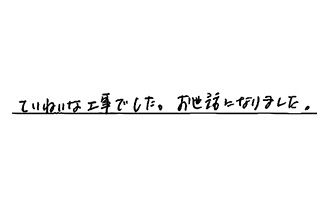 ていねいな工事でした。お世話になりました。